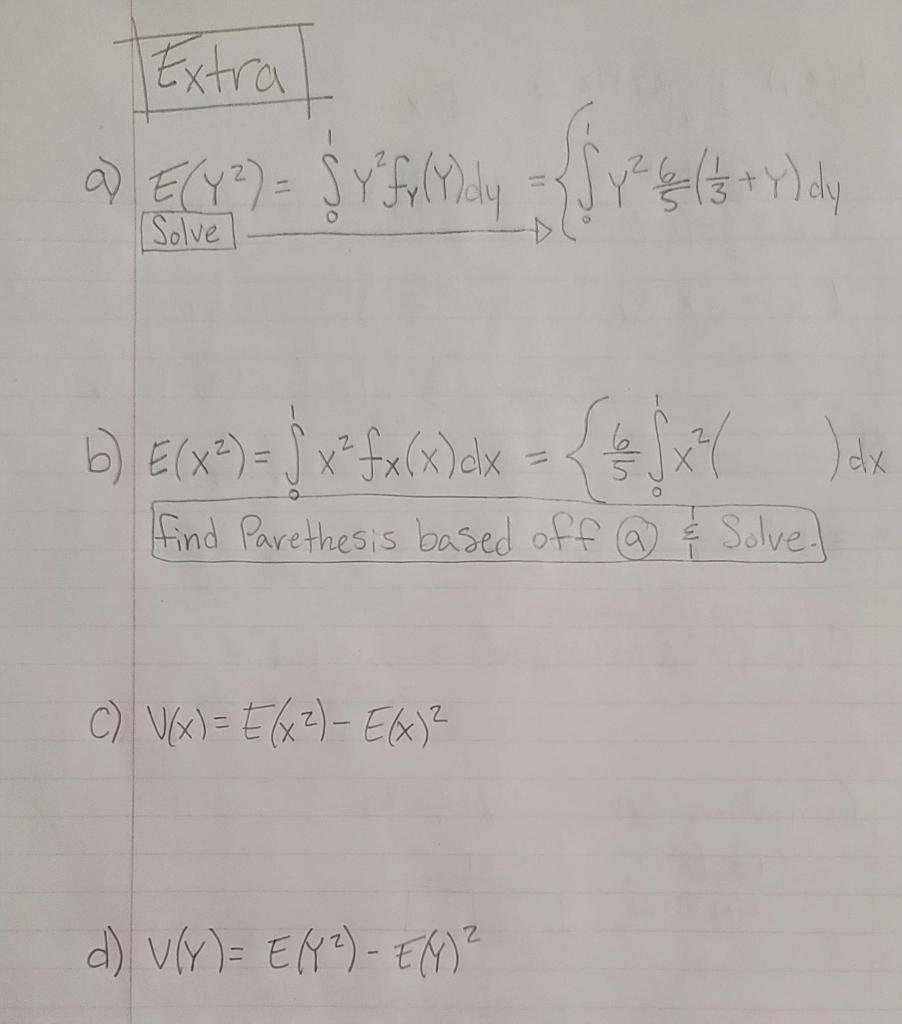 Extra
a) E(Y²) = ∫₀¹ Y² fᵧ(Y) dy = { ∫₀¹ Y² 6/5 (1/3 + Y) dy
Solve
b) E(x²) = ∫₀¹ x² fx(x) dx = { 6/5 ∫₀¹ x² ( ) dx
find Parethesis based off ⓐ & Solve.
c) V(x) = E(x²) - E(x)²
d) V(Y) = E(Y²) - E(Y)²